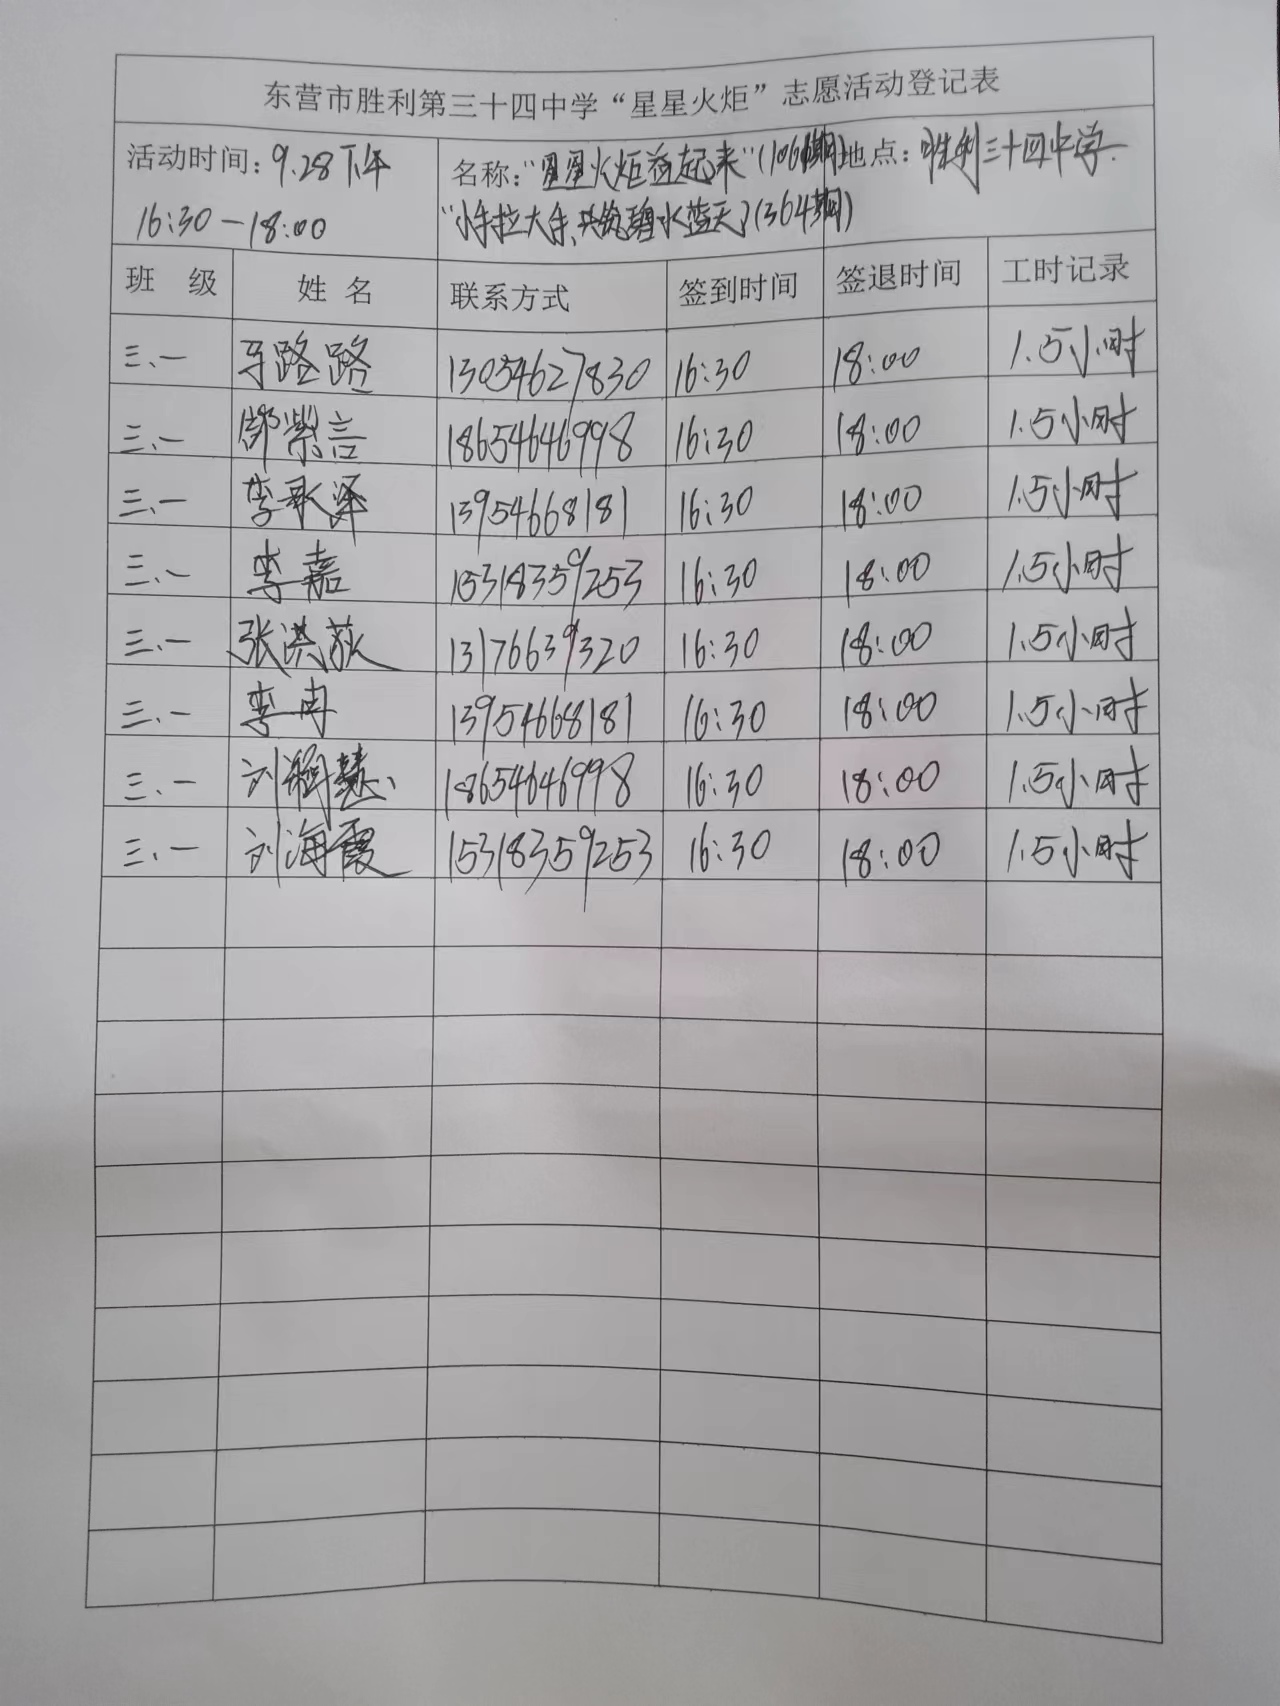 东营市胜利第三十四中学“星星火炬”志愿活动登记表
活动时间：9.28下午 名称：“星星火炬益起来”(106期) 地点：胜利三十四中学.
16:30－18:00 “小手拉大手、共筑碧水蓝天”(364期)
班 级 姓 名 联系方式 签到时间 签退时间 工时记录
三、一 路路 13054627830 16:30 18:00 1.5小时
三、一 紫言 18654646998 16:30 18:00 1.5小时
三、一 李泽 13954668181 16:30 18:00 1.5小时
三、一 李嘉 15318359253 16:30 18:00 1.5小时
三、一 张洪 13176639320 16:30 18:00 1.5小时
三、一 李冉 13954668181 16:30 18:00 1.5小时
三、一 刘慧 18654646998 16:30 18:00 1.5小时
三、一 刘海霞 15318359253 16:30 18:00 1.5小时